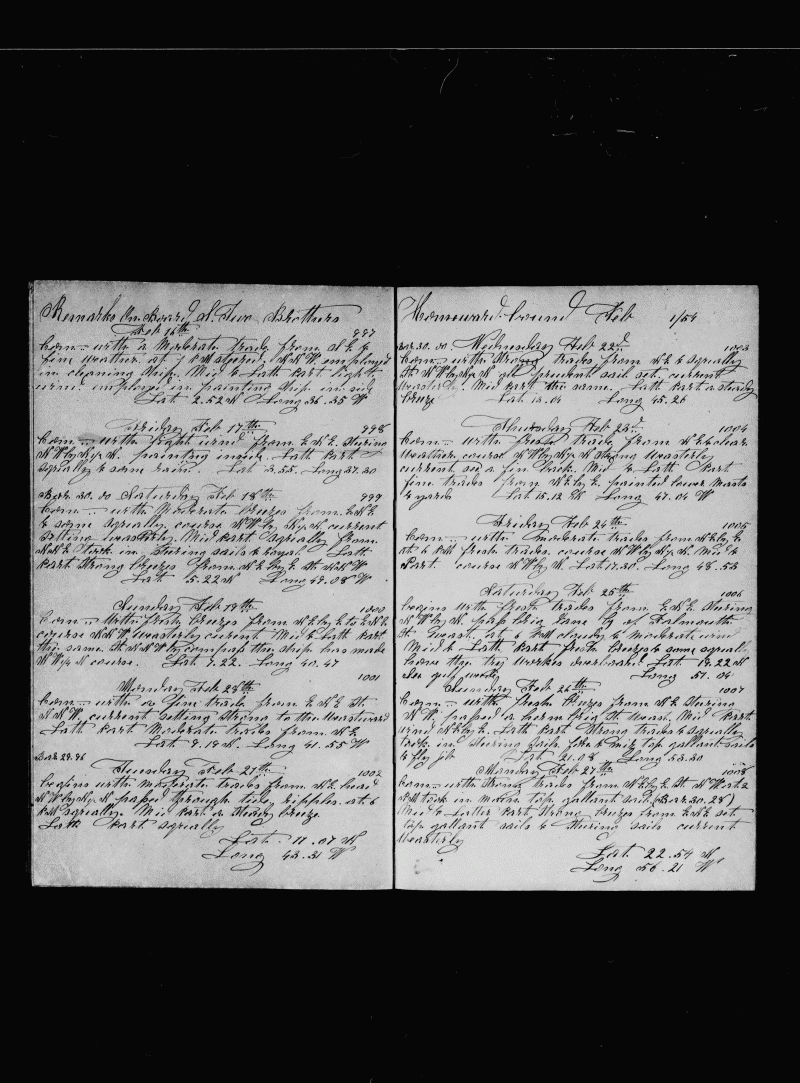 Remarks On Board S. Two Brothers
Feb 16th 997
Com— with a Moderate trade from N E &
fine weather at 7 AM steered N N W employed
in cleaning ship. Mid & Latt part light
wind employed in painting ship in side
Lat 2.52 N Long 36.35 W
Friday Feb 17th 998
Com— with light wind from E N E Stearing
N W by N ½ N. painting inside. Latt part
squally & some rain. Lat 3.55. Long 37.30
Bar. 30.00 Saturday Feb 18th 999
Com— with Moderate breezes from E N E
& some squally. course N W by N ½ N current
setting westerly. Mid part squally from
N N E took in stearing sails & royal. Latt
part Strong breezes from N E by E St N N W
Lat 5.22 N Long 39.08 W
Sunday Feb 19th 1000
Com— With fresh breezes from N E by E to E N E
course N N W westerly current Mid & Latt part
the same St N N W by compass the ship has made
N W ½ N course. Lat 7.22. Long 40.47
1001
Monday Feb 20th
Com— with a fine trade from E N E St.
N N W. current setting strong to the westward
Latt part Moderate trades from N E
Lat 9.19 N. Long 41.55 W
Bar 29.96
Tuesday Feb 21th 1002
begins with moderate trades from N E head
N W by N ½ N passed through tide ripples at 6
PM squally. Mid part a steady breeze
Latt part squally
Lat 11.07 N
Long 43.31 W
Homeward bound Feb 1/54
Bar 30.00 Wednesday Feb 22d 1003
Com— with Strong trades from N E & squally
St N W by N ½ N all prudent sail set. current
westerly. Mid part the same. Latt part a steady
breeze Lat 13.04 Long 45.26
Thursday Feb 23d 1004
Com— with fresh trade from N E & clear
weather. course N W by N ½ N strong westerly
current see a fin back. Mid & Latt part
fine trades from N E by E. painted lower Masts
& yards Lat 15.12 N Long 47.04 W
Friday Feb 24th 1005
Com— with moderate trades from N E by E
At 6 PM fresh trades. course N W by N ½ N. Mid &
Part course N W by N. Lat 17.30. Long 48.53
Saturday Feb 25th 1006
begins with fresh trades from E N E Stearing
N W by N. pass brig Jane of Falmouth
St Swast. at 6 PM cloudy & moderate wind
Mid & Latt part fresh breezes & some squally
have the try works overboard. Lat 19.22 N
See gulf weed Long 51.04
Sunday Feb 26th 1007
Com— with fresh breezes from N E Stearing
N W. passed a herm brig St west. Mid part
wind N E by E. Latt part Strong trades & squally
took in stearing sails fore & miz top gallant sails
& fly jib Lat 21.08 Long 53.30
Monday Feb 27th 1008
Com— with Strong trades from N E by E St. N W at 2
PM took in main top gallant sail (Bar 30.28)
Mid & Latter part Strong breezes from E N E set
top gallant sails & stearing sails current
westerly
Lat. 22.54 N
Long 56.21 W